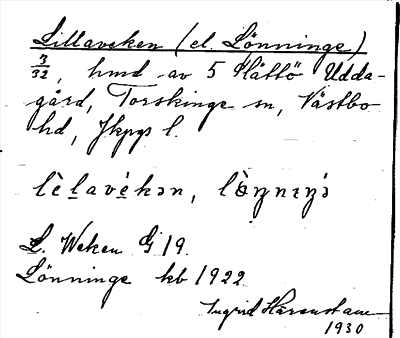 Lillaveken (el. Lönninge)
3/32, hmd av 5 Slättö Udda-
gård, Torskinge sn, Västbo
hd, Jkpgs l.
lè̱lavé̱kən, lö̀ŋnɪŋə
L. Weken G 19.
Lönninge kb 1922.
Ingrid Härenstam
1930